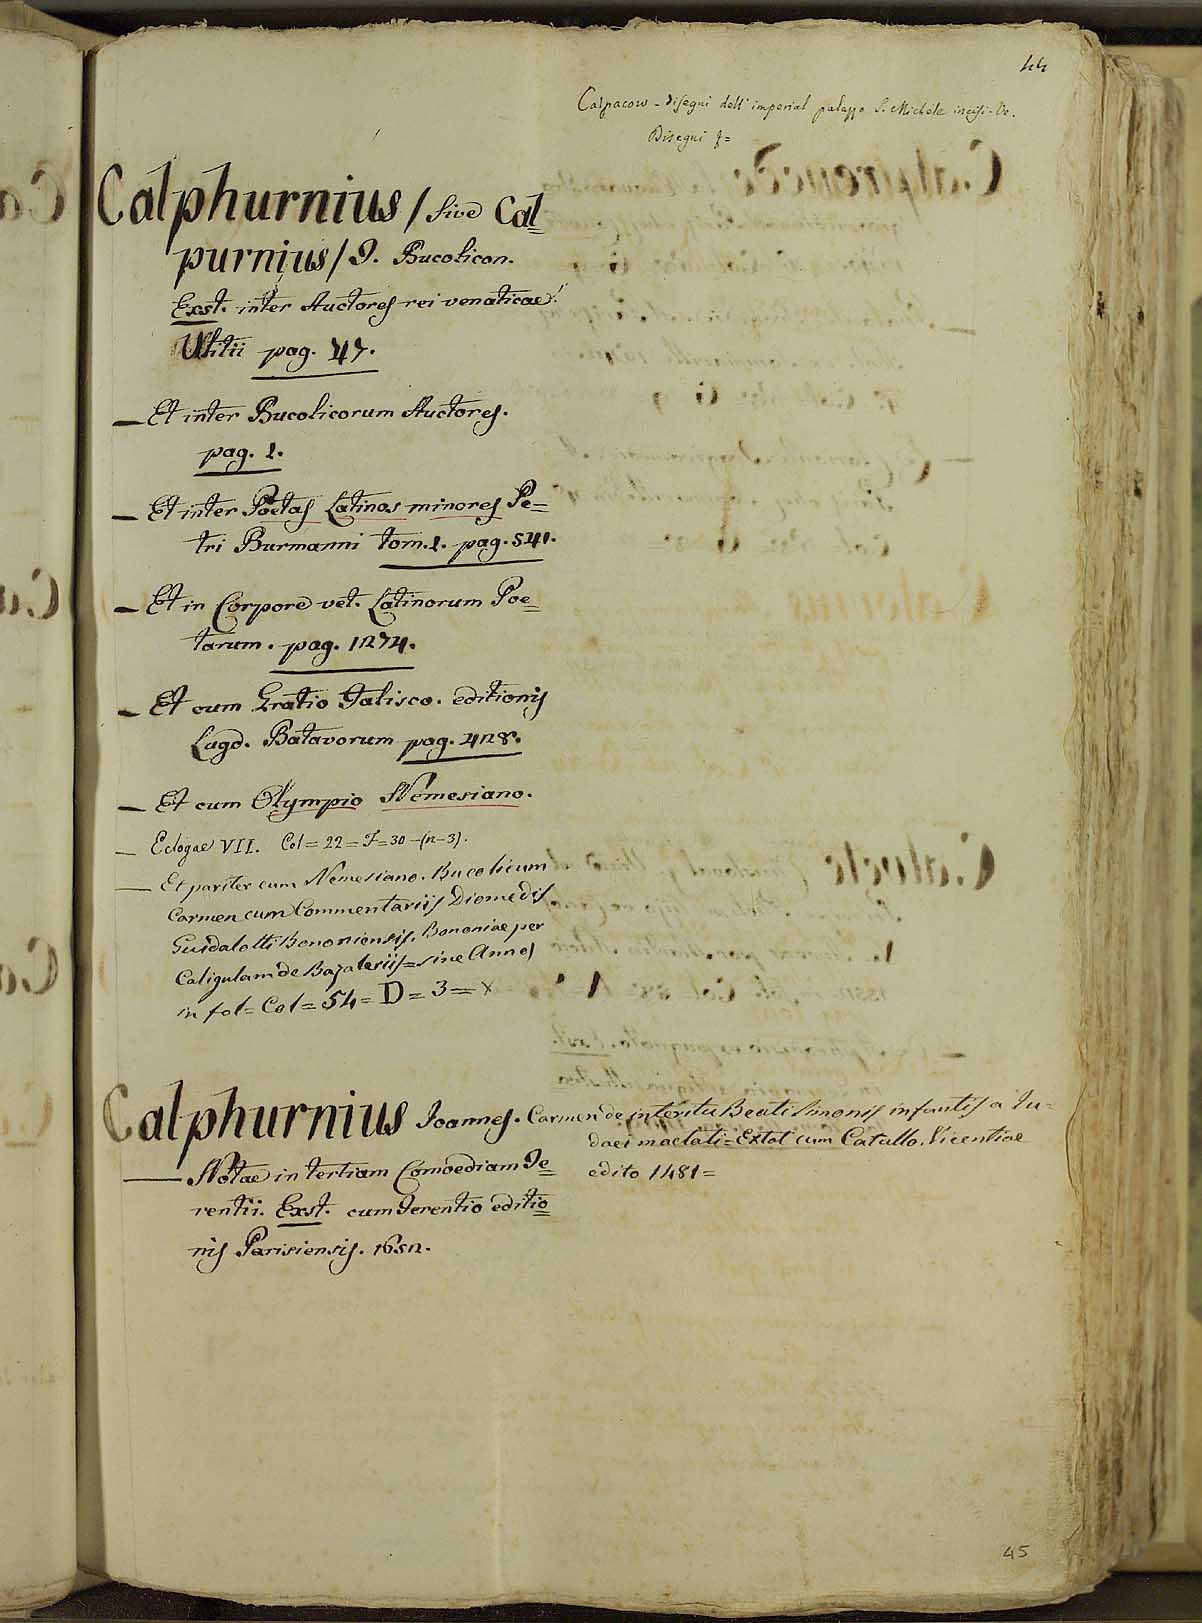 44
Calpacow - Disegni dell' imperial palazzo S. Michele incisi - Ve.
Disegni f=
Calphurnius / sive Cal=
purnius / T. Bucolicon.
Exst. inter Auctores rei venaticae
Ulitii pag. 47.
— Et inter Bucolicorum Auctores.
pag. 1.
— Et inter Poetas Latinos minores Pe=
tri Burmanni tom. 1. pag. 541.
— Et in Corpore vet. Latinorum Poe=
tarum. pag. 1274.
— Et cum Gratio Falisco. editionis
Lugd. Batavorum pag. 428.
— Et cum Olympio Nemesiano.
— Eclogae VII. Col = 22 = F = 30 - (n-3).
— Et pariter cum Nemesiano. Bucolicum
Carmen cum Commentariis Diomedis
Guidalotti Bononiensis. Bononiae per
Caligulam de Bazaleriis = sine Anno)
in fol = Col = 54 = D = 3 = x
Calphurnius Joannes. Carmen de interitu Beati Simonis infantis a Ju=
daei mactati = Extat cum Catullo. Vicentiae
edito 1481 =
— Notae in tertiam Comoediam Te=
rentii. Exst. cum Terentio editio=
nis Parisiensis. 1652.
45